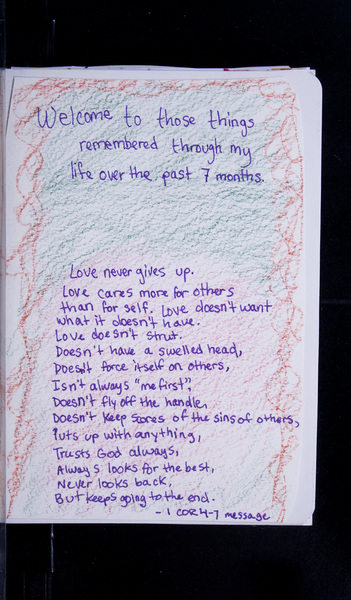 Welcome to those things
remembered through my
life over the past 7 months.
Love never gives up.
Love cares more for others
than for self. Love doesn't want
what it doesn't have.
Love doesn't strut.
Doesn't have a swelled head,
Doesn't force itself on others,
Isn't always "me first",
Doesn't fly off the handle,
Doesn't keep scores of the sins of others,
Puts up with anything,
Trusts God always,
Always looks for the best,
Never looks back,
But keeps going to the end.
- 1 COR 4-7 message